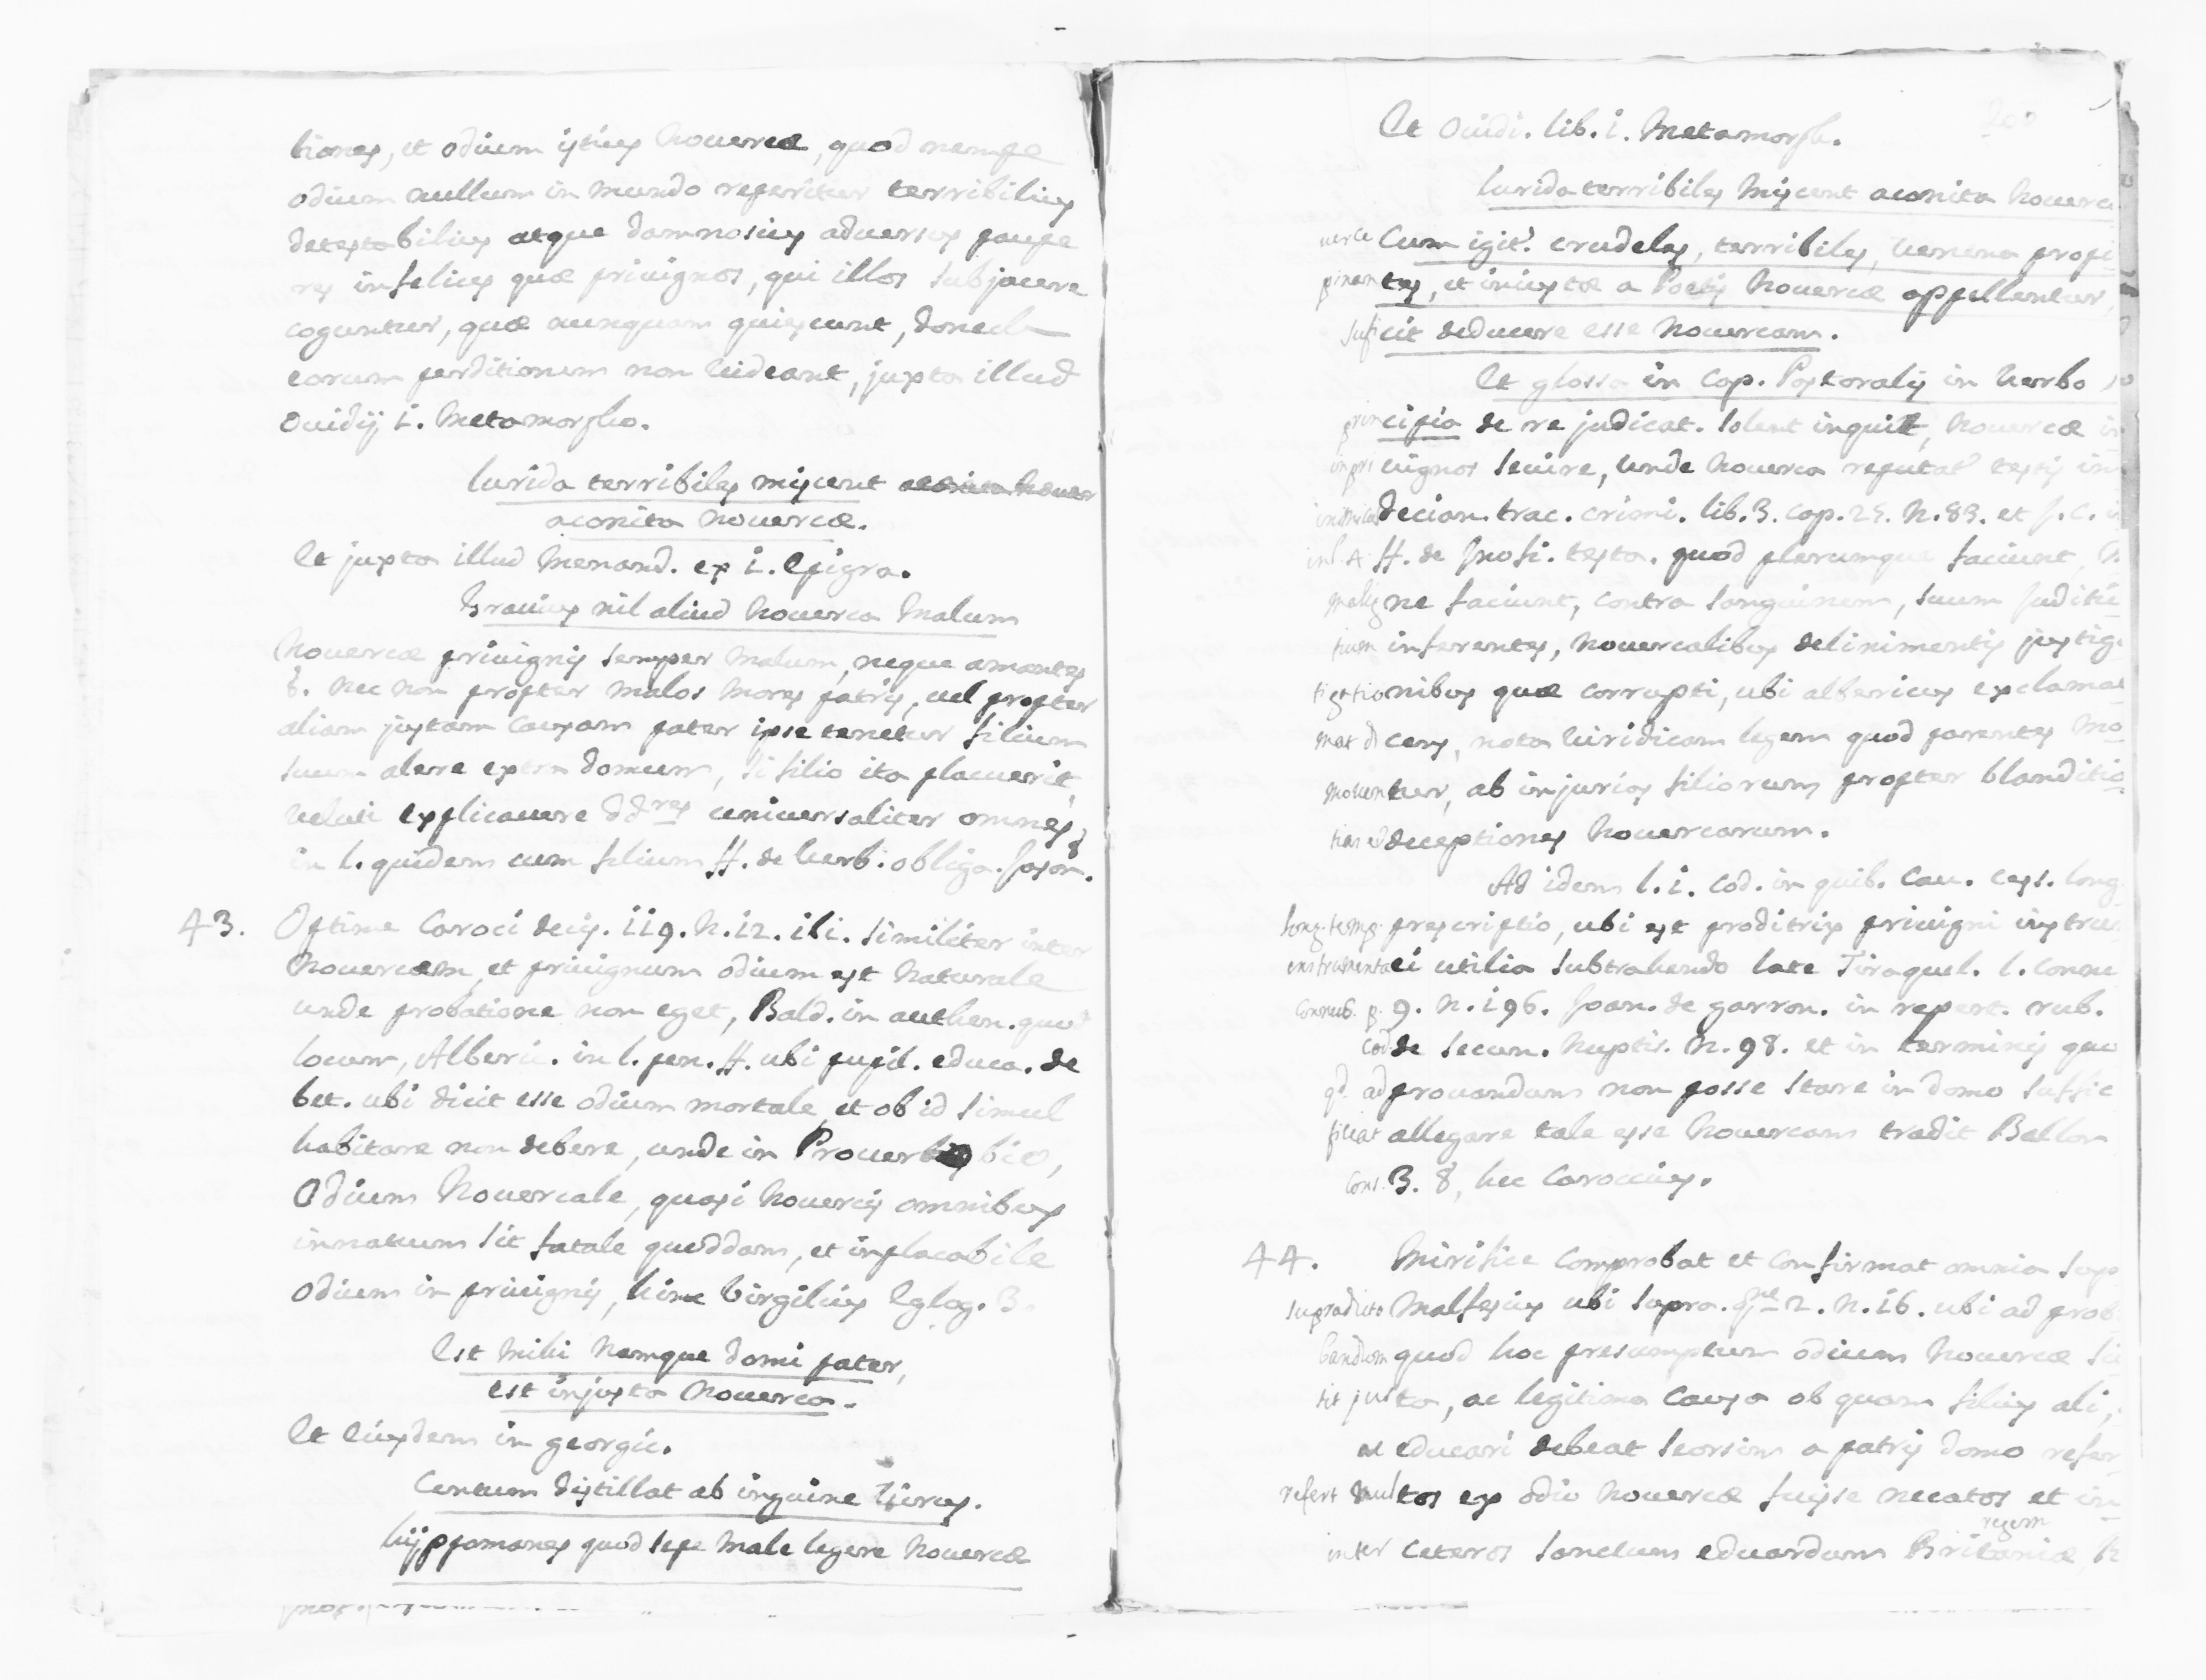 tiones, et odium istius Nouercæ, quod nempe
odium nullum in Mundo reperitur terribilius
detestabilius atque damnosius aduersus paupe
res infelices quæ priuignos, qui illos subjacere
coguntur, quæ nunquam quiescunt, donech
eorum perditionem non uideant, juxta illud
Ouidij 1. Metamorpho.
Lurida terribiles miscent
aconita Nouercæ.
Et juxta illud Menand. ex 1. Epigra.
Grauius nil aliud Nouerca Malum
Nouercæ priuignis semper Malum, neque amantes
&. Nec non propter malos Mores patris, uel propter
aliam justam Causam pater ipse tenetur filium
suum alere extra domum, si filio ita placuerit,
ueluti explicauere DDres uniuersaliter omnes
in l. quidem cum filium ff. de Uerb. obliga. Jason.
43. Optime Caroci decis. 119. N. 12. ibi. Similiter inter
Nouercam, et priuignum odium est Naturale
unde probatione non eget, Bald. in authen. quod
locum, Alberic. in l. pen. ff. ubi pupil. educa. de
bet. ubi dicit esse odium mortale et ob id simul
habitare non debere, unde in Prouerbio,
Odium Nouercale, quasi Nouercis omnibus
innatum sit fatale quoddam, et inplacabile
Odium in priuignis, hinc Virgilius Eglog. 3.
Est Mihi Namque domi pater,
est injusta Nouerca.
Et Eiusdem in georgic.
Centum distillat ab inguine
hijppomanes quod sepe Male legere Nouercæ
Et Ouidi. lib. 1. Metamorph.
Lurida terribiles Miscent aconita Nouerc
uerce Cum igit.r crudeles, terribiles, Uenena propi
pinantes, et iniustæ a Poetis Nouercæ appellentur,
suficit deducere esse Nouercam.
Et glossa in Cap. Pastoralis in Uerbo
principia de re judicat. Solent inquit, Nouercæ in
in priuignos seuire, Unde Nouerca reputat.r testis in
inimica Decian. trac. crimi. lib. 3. Cap. 25. N. 83. et J. C. in
in l. 4. ff. de Jnofi. testa. quod plerumque faciunt,
maligne faciunt, contra sanguinem, suum Juditiu
tium inferentes, nouercalibus delinimentis justig
tigationibus quæ corrupti, ubi albericus exclamat
mat dicens, nota Uiridicam legem quod parentes mo
mouentur, ab injurias filiorum propter blanditia
tias et deceptiones Nouercarum.
Ad idem l. 1. Cod. in quib. Cau. cess. long
long. temp. prescriptio, ubi est proditrix priuigni instru
instrumenta ei utilia subtrahendo late Tiraquel. l. Connu
Connub. p. 9. N. 196. Joan. de garron. in repert. rub.
cod. de secun. Nuptis. N. 98. et in terminis quo
qd. ad prouandum non posse stare in domo suffic
ficiat allegare tale esse Nouercam tradit Bellon
Cons. 3. 8, hec Caroccius.
44. Mirifice Comprobat et Confirmat omnia supr
supradicto Malfesius ubi supra. qne 2. N. 16. ubi ad prob
bandum quod hoc presumptum odium Nouercæ si
sit justa, ac legitima Causa ob quam filius ali,
ac educari debeat seorsim a patris domo refer
refert Multos ex odio Nouercæ fuisse necatos et in
regem
inter Ceteros Sanctum eduardum Britaniæ